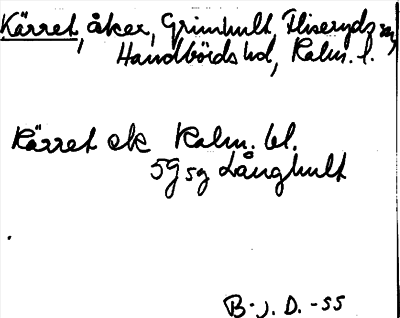 Kärret, åker, Grimhult, Fliseryds sn,
Handbörds hd, Kalm. l.
Kärret ek Kalm. bl.
59 sg Långhult
B-j. D. -55